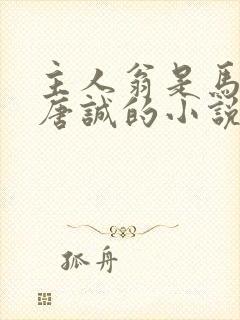 主人翁是馬
唐誠的小說
孤舟